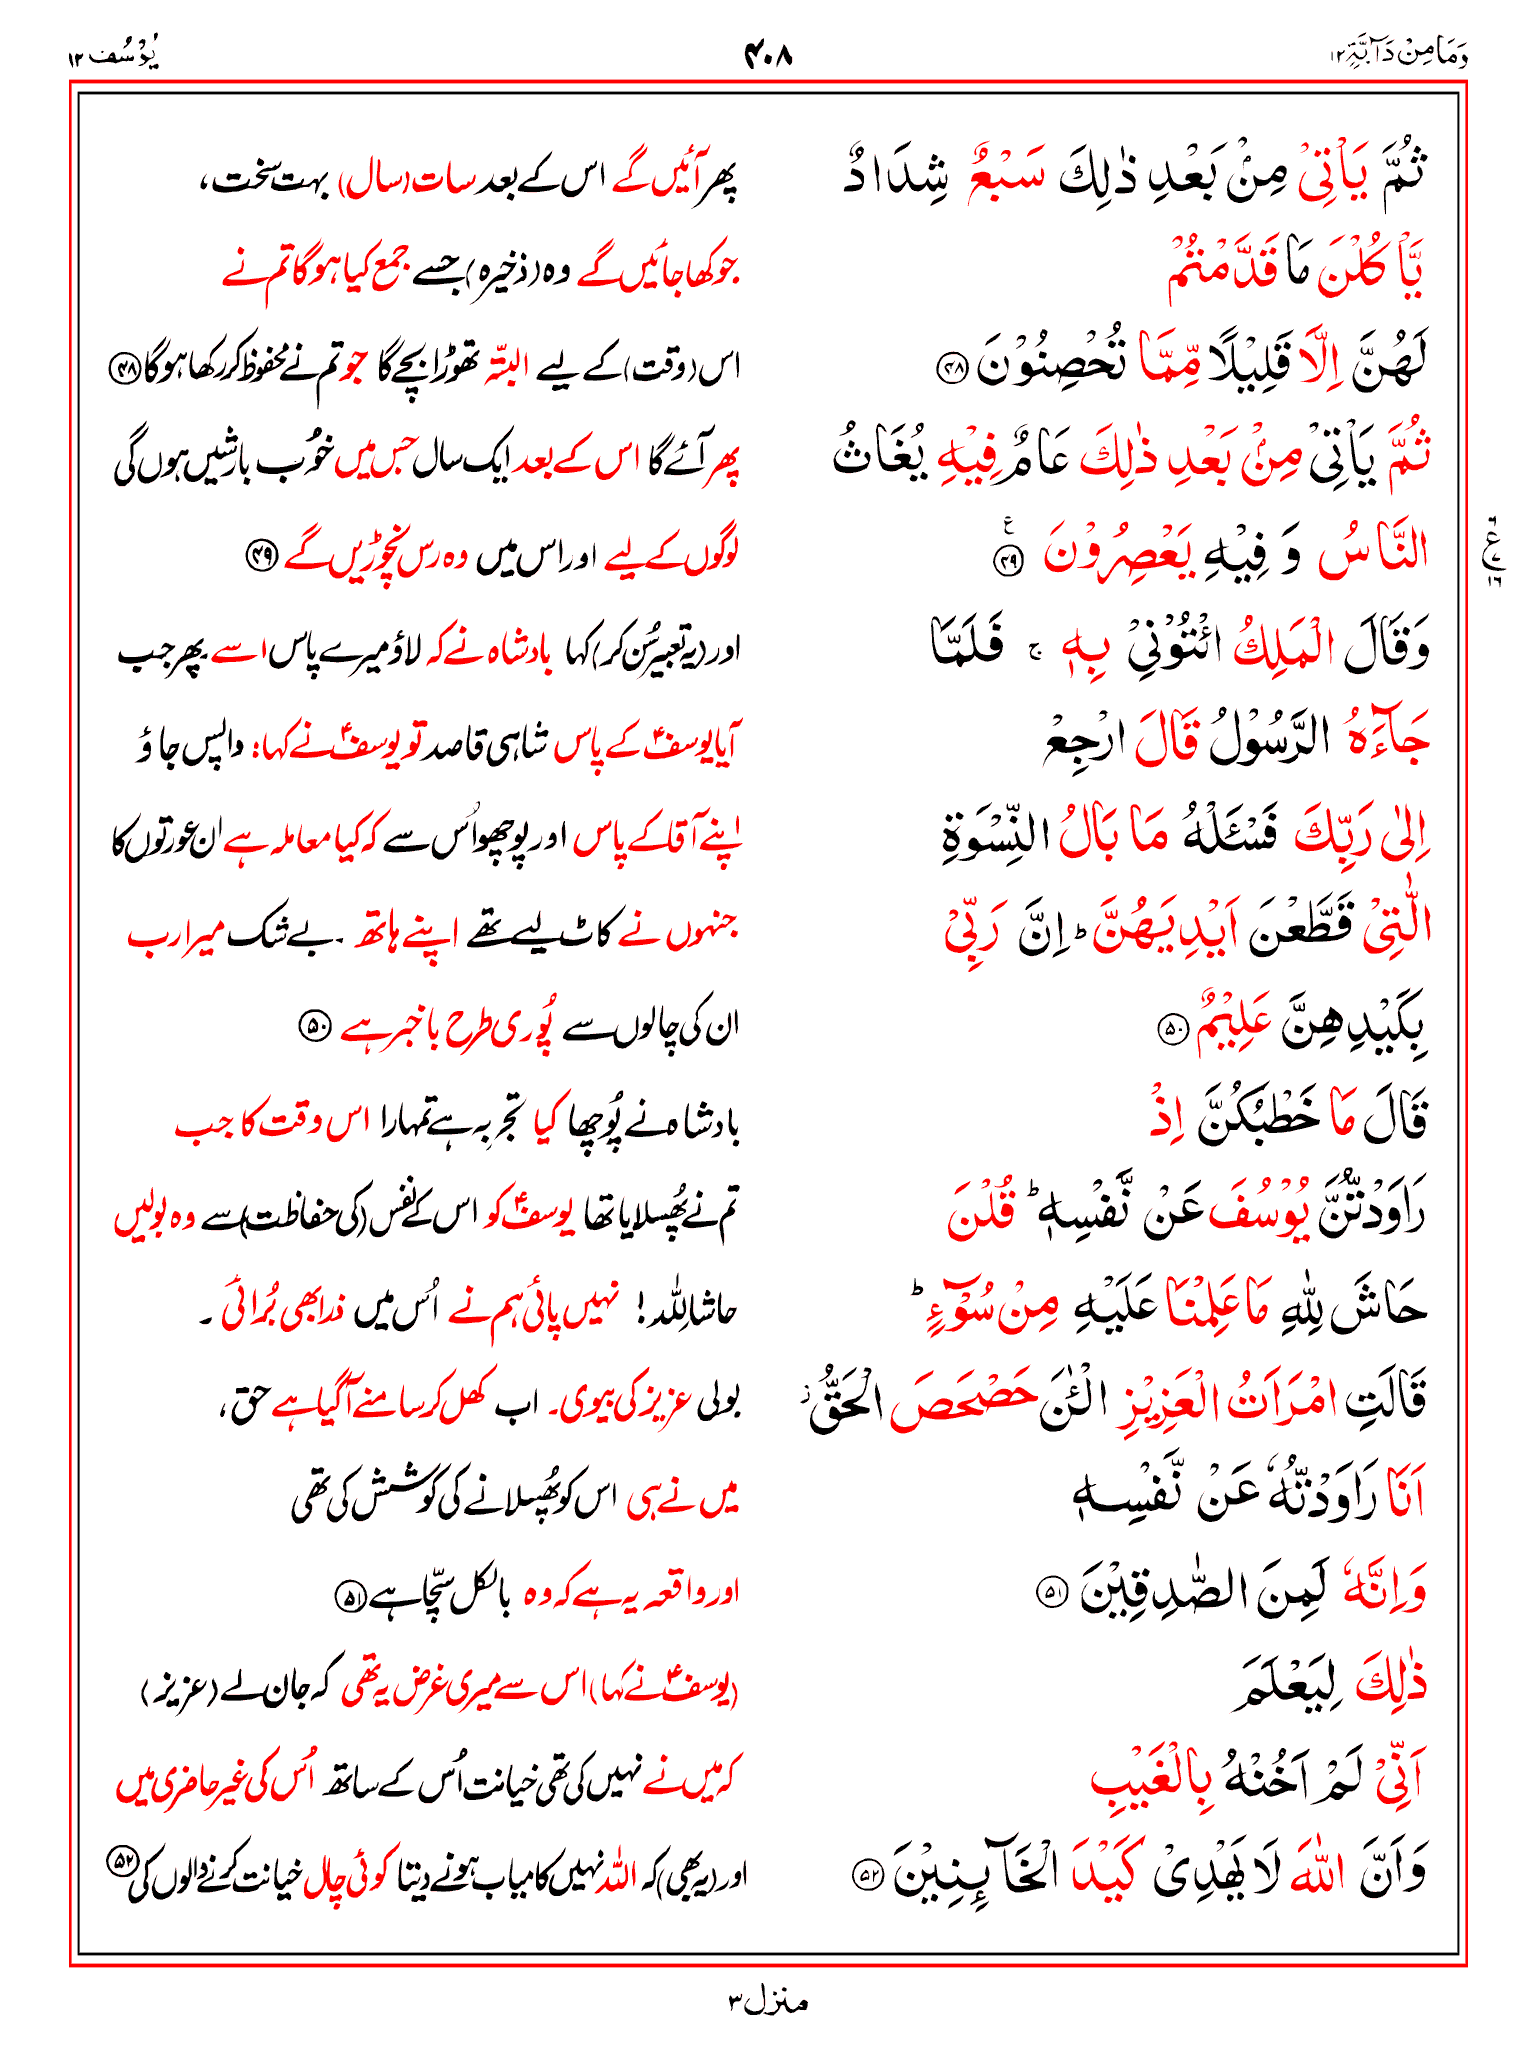 وَمَا مِنْ دَآبَّةٍ ۱۲
۴۰۸
یُوْسُف ۱۲
ثُمَّ یَاْتِیْ مِنْۢ بَعْدِ ذٰلِكَ سَبْعٌ شِدَادٌ پھر آئیں گے اس کے بعد سات (سال) بہت سخت،
یَّاْكُلْنَ مَا قَدَّمْتُمْ جو کھا جائیں گے وہ (ذخیرہ) جسے جمع کیا ہوگا تم نے
لَهُنَّ اِلَّا قَلِیْلًا مِّمَّا تُحْصِنُوْنَ ۴۸ اس (وقت) کے لیے البتہ تھوڑا بچے گا جو تم نے محفوظ کر رکھا ہوگا ۴۸
ثُمَّ یَاْتِیْ مِنْۢ بَعْدِ ذٰلِكَ عَامٌ فِیْهِ یُغَاثُ پھر آئے گا اس کے بعد ایک سال جس میں خوُب بارشیں ہوں گی
النَّاسُ وَ فِیْهِ یَعْصِرُوْنَ ۴۹ ع لوگوں کے لیے اور اس میں وہ رس نچوڑیں گے ۴۹
وَقَالَ الْمَلِكُ ائْتُوْنِیْ بِهٖ ۚ فَلَمَّا اور (یہ تعبیر سُن کر) کہا بادشاہ نے کہ لاؤ میرے پاس اسے پھر جب
جَآءَهُ الرَّسُوْلُ قَالَ ارْجِعْ آیا یوسفؑ کے پاس شاہی قاصد تو یوسفؑ نے کہا: واپس جاؤ
اِلٰی رَبِّكَ فَسْـَٔلْهُ مَا بَالُ النِّسْوَةِ اپنے آقا کے پاس اور پوچھو اُس سے کہ کیا معاملہ ہے ان عورتوں کا
الّٰتِیْ قَطَّعْنَ اَیْدِیَهُنَّ ؕ اِنَّ رَبِّیْ جنہوں نے کاٹ لیے تھے اپنے ہاتھ ۔ بے شک میرا رب
بِكَیْدِهِنَّ عَلِیْمٌ ۵۰ ان کی چالوں سے پُوری طرح باخبر ہے ۵۰
قَالَ مَا خَطْبُكُنَّ اِذْ بادشاہ نے پُوچھا کیا تجربہ ہے تمہارا اس وقت کا جب
رَاوَدْتُّنَّ یُوْسُفَ عَنْ نَّفْسِهٖ ؕ قُلْنَ تم نے پُھسلایا تھا یوسفؑ کو اس کے نفس (کی حفاظت) سے وہ بولیں
حَاشَ لِلّٰهِ مَا عَلِمْنَا عَلَیْهِ مِنْ سُوْٓءٍ ؕ حاشا لِلّٰہ! نہیں پائی ہم نے اُس میں ذرا بھی بُرائی ۔
قَالَتِ امْرَاَتُ الْعَزِیْزِ الْـٰٔنَ حَصْحَصَ الْحَقُّ ۫ بولی عزیز کی بیوی۔ اب کھل کر سامنے آگیا ہے حق،
اَنَا رَاوَدْتُّهٗ عَنْ نَّفْسِهٖ میں نے ہی اس کو پُھسلانے کی کوشش کی تھی
وَاِنَّهٗ لَمِنَ الصّٰدِقِیْنَ ۵۱ اور واقعہ یہ ہے کہ وہ بالکل سچّا ہے ۵۱
ذٰلِكَ لِیَعْلَمَ (یوسفؑ نے کہا) اس سے میری غرض یہ تھی کہ جان لے (عزیز)
اَنِّیْ لَمْ اَخُنْهُ بِالْغَیْبِ کہ میں نے نہیں کی تھی خیانت اُس کے ساتھ اُس کی غیر حاضری میں
وَاَنَّ اللّٰهَ لَا یَهْدِیْ كَیْدَ الْخَآىِٕنِیْنَ ۵۲ اور (یہ بھی) کہ اللّٰہ نہیں کامیاب ہونے دیتا کوئی چال خیانت کرنے والوں کی ۵۲
منزل ۳